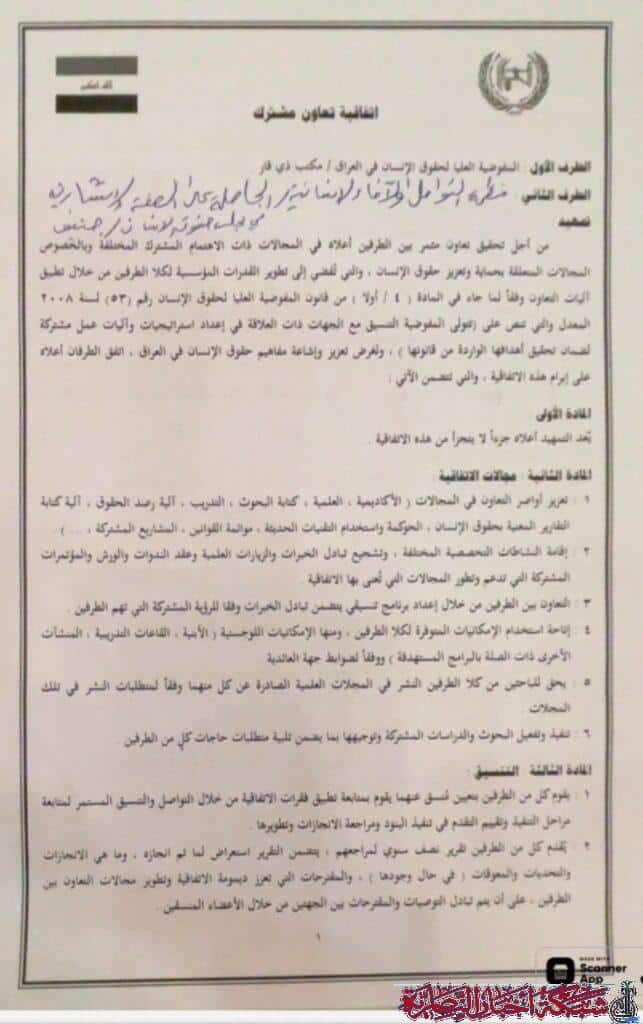 الله اكبر
اتفاقية تعاون مشترك
الطرف الأول : المفوضية العليا لحقوق الإنسان في العراق / مكتب ذي قار
الطرف الثاني : منظمة التواصل والاخاء الانسانية / الحاصلة على الصفة الاستشارية
في مجلس حقوق الانسان / جنيف
تمهيد
من أجل تحقيق تعاون مثمر بين الطرفين أعلاه في المجالات ذات الاهتمام المشترك المختلفة وبالخصوص
المجالات المتعلقة بحماية وتعزيز حقوق الإنسان ، والتي تُفضي إلى تطوير القدرات المؤسسية لكلا الطرفين من خلال تطبيق
آليات التعاون وفقاً لما جاء في المادة ( ٤ / أولا ) من قانون المفوضية العليا لحقوق الإنسان رقم (٥٣) لسنة ٢٠٠٨
المعدل والتي تنص على (تتولى المفوضية التنسيق مع الجهات ذات العلاقة في إعداد استراتيجيات وآليات عمل مشتركة
لضمان تحقيق أهدافها الواردة من قانونها ) ، ولغرض تعزيز وإشاعة مفاهيم حقوق الإنسان في العراق ، اتفق الطرفان أعلاه
على إبرام هذه الاتفاقية ، والتي تتضمن الآتي :
المادة الأولى:
يُعد التمهيد أعلاه جزءاً لا يتجزأ من هذه الاتفاقية .
المادة الثانية : مجالات الاتفاقية :
١ . تعزيز أواصر التعاون في المجالات ( الأكاديمية ، العلمية ، كتابة البحوث ، التدريب ، آلية رصد الحقوق ، آلية كتابة
التقارير المعنية بحقوق الإنسان ، الحوكمة واستخدام التقنيات الحديثة ، موائمة القوانين ، المشاريع المشتركة ، ... ) .
٢ . إقامة النشاطات التخصصية المختلفة ، وتشجيع تبادل الخبرات والزيارات العلمية وعقد الندوات والورش والمؤتمرات
المشتركة التي تدعم وتطور المجالات التي تُعنى بها الاتفاقية .
٣ . التعاون بين الطرفين من خلال إعداد برنامج تنسيقي يتضمن تبادل الخبرات وفقا للرؤية المشتركة التي تهم الطرفين .
٤ . إتاحة استخدام الإمكانيات المتوفرة لكلا الطرفين ، ومنها الإمكانيات اللوجستية ( الأبنية ، القاعات التدريبية ، المنشآت
الأخرى ذات الصلة بالبرامج المستهدفة ) ووفقاً لضوابط جهة العائدية
٥ . يحق للباحثين من كلا الطرفين النشر في المجلات العلمية الصادرة عن كل منهما وفقاً لمتطلبات النشر في تلك
المجلات .
٦ . تنفيذ وتفعيل البحوث والدراسات المشتركة وتوجيهها بما يضمن تلبية متطلبات حاجات كل من الطرفين .
المادة الثالثة : التنسيق :
١ . يقوم كل من الطرفين بتعيين مُنسق عنهما يقوم بمتابعة تطبيق فقرات الاتفاقية من خلال التواصل والتنسيق المستمر لمتابعة
مراحل التنفيذ وتقييم التقدم في تنفيذ البنود ومراجعة الانجازات وتطويرها .
٢ . يُقدم كل من الطرفين تقرير نصف سنوي لمراجعهم ، يتضمن التقرير استعراض لما تم انجازه ، وما هي الانجازات
والتحديات والمعوقات ( في حال وجودها ) ، والمقترحات التي تعزز ديمومة الاتفاقية وتطوير مجالات التعاون بين
الطرفين ، على أن يتم تبادل التوصيات والمقترحات بين الجهتين من خلال الأعضاء المنسقين .
١
MADE WITH
Scanner
App
شبكة اخبار الناصرية